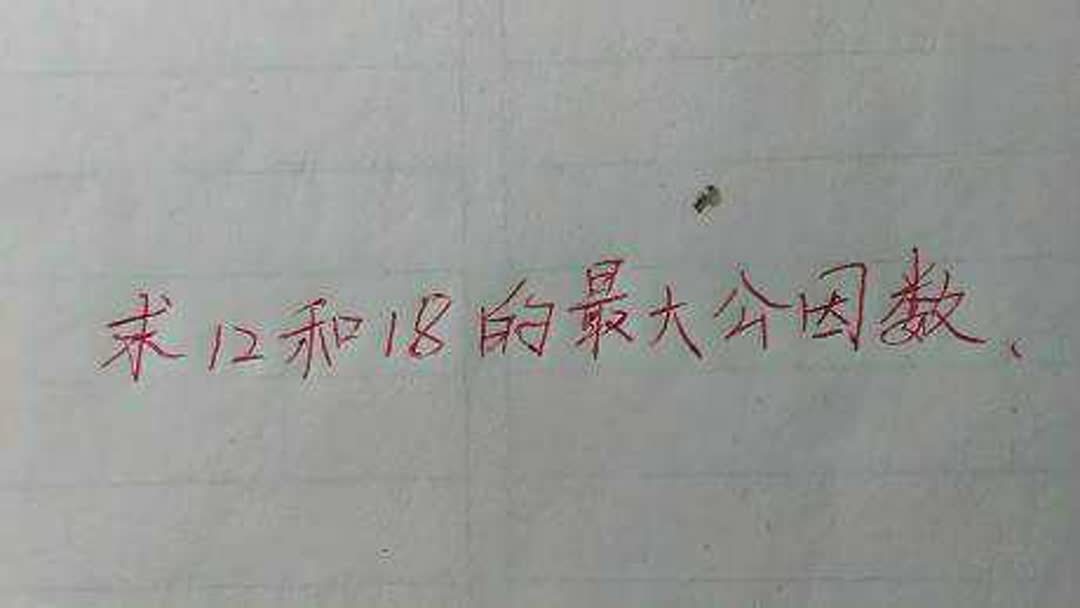 求12和18的最大公因数、